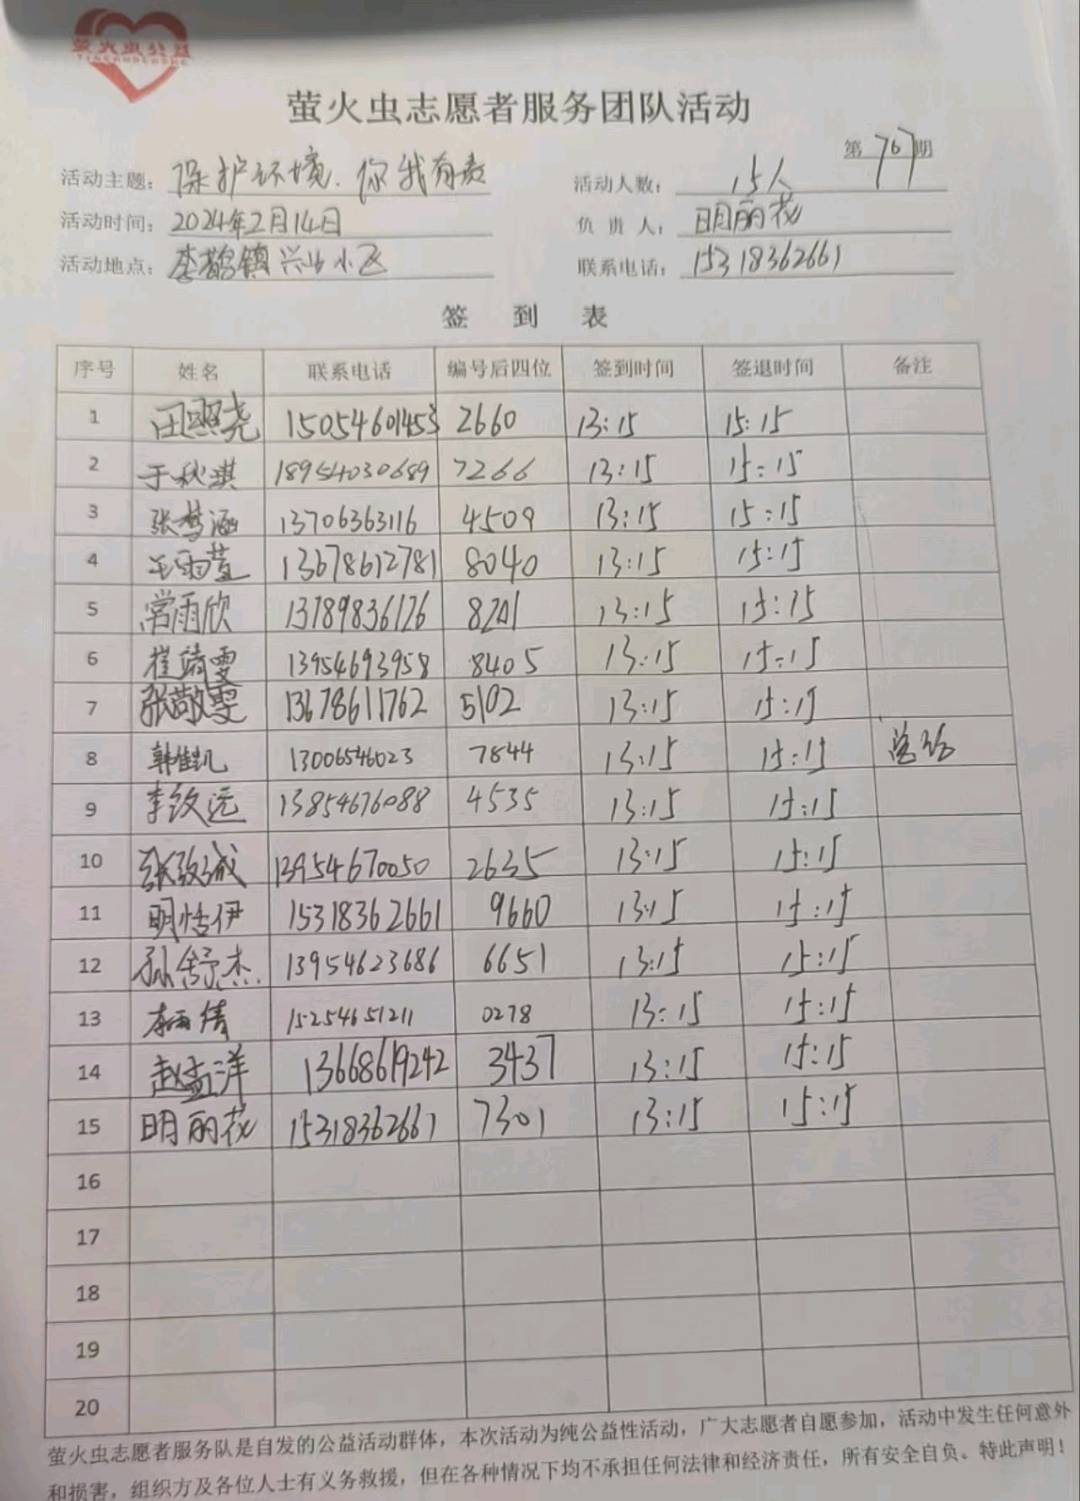 萤火虫志愿者服务团队活动
第767期
活动主题：保护环境、你我有责 活动人数：15人
活动时间：2024年2月14日 负责人：明丽花
活动地点：李鹊镇兴 小区 联系电话：15318362661
签到表
序号 姓名 联系电话 编号后四位 签到时间 签退时间 备注
1 田照尧 15054601453 2660 13:15 15:15
2 于秋琪 18954030689 7266 13:15 15:15
3 张梦涵 13706363116 4509 13:15 15:15
4 王雨萱 13678612781 8040 13:15 15:15
5 常雨欣 13789836126 8201 13:15 15:15
6 崔靖雯 13954693958 8405 13:15 15:15
7 张敬雯 13678611762 5102 13:15 15:15
8 韩佳凯 13006546023 7844 13:15 15:15
9 李致远 13854676088 4535 13:15 15:15
10 张致诚 13954670050 2635 13:15 15:15
11 明恬伊 15318362661 9660 13:15 15:15
12 孙舒杰 13954623686 6651 13:15 15:15
13 李雨倩 15254651211 0278 13:15 15:15
14 赵孟洋 13668619242 3437 13:15 15:15
15 明丽花 15318362661 7301 13:15 15:15
16
17
18
19
20
萤火虫志愿者服务队是自发的公益活动群体，本次活动为纯公益性活动，广大志愿者自愿参加，活动中发生任何意外
和损害，组织方及各位人士有义务救援，但在各种情况下均不承担任何法律和经济责任，所有安全自负。特此声明！